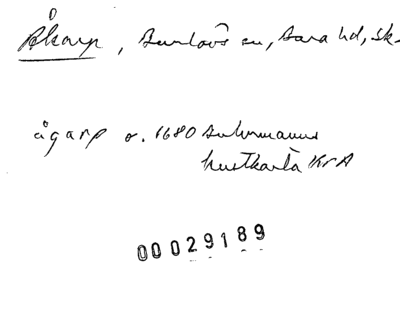 Åkarp, Burlövs sn, Bara hd, Sk.
ågarp o. 1680 Buhrmanns
kustkarta KrA
00029189